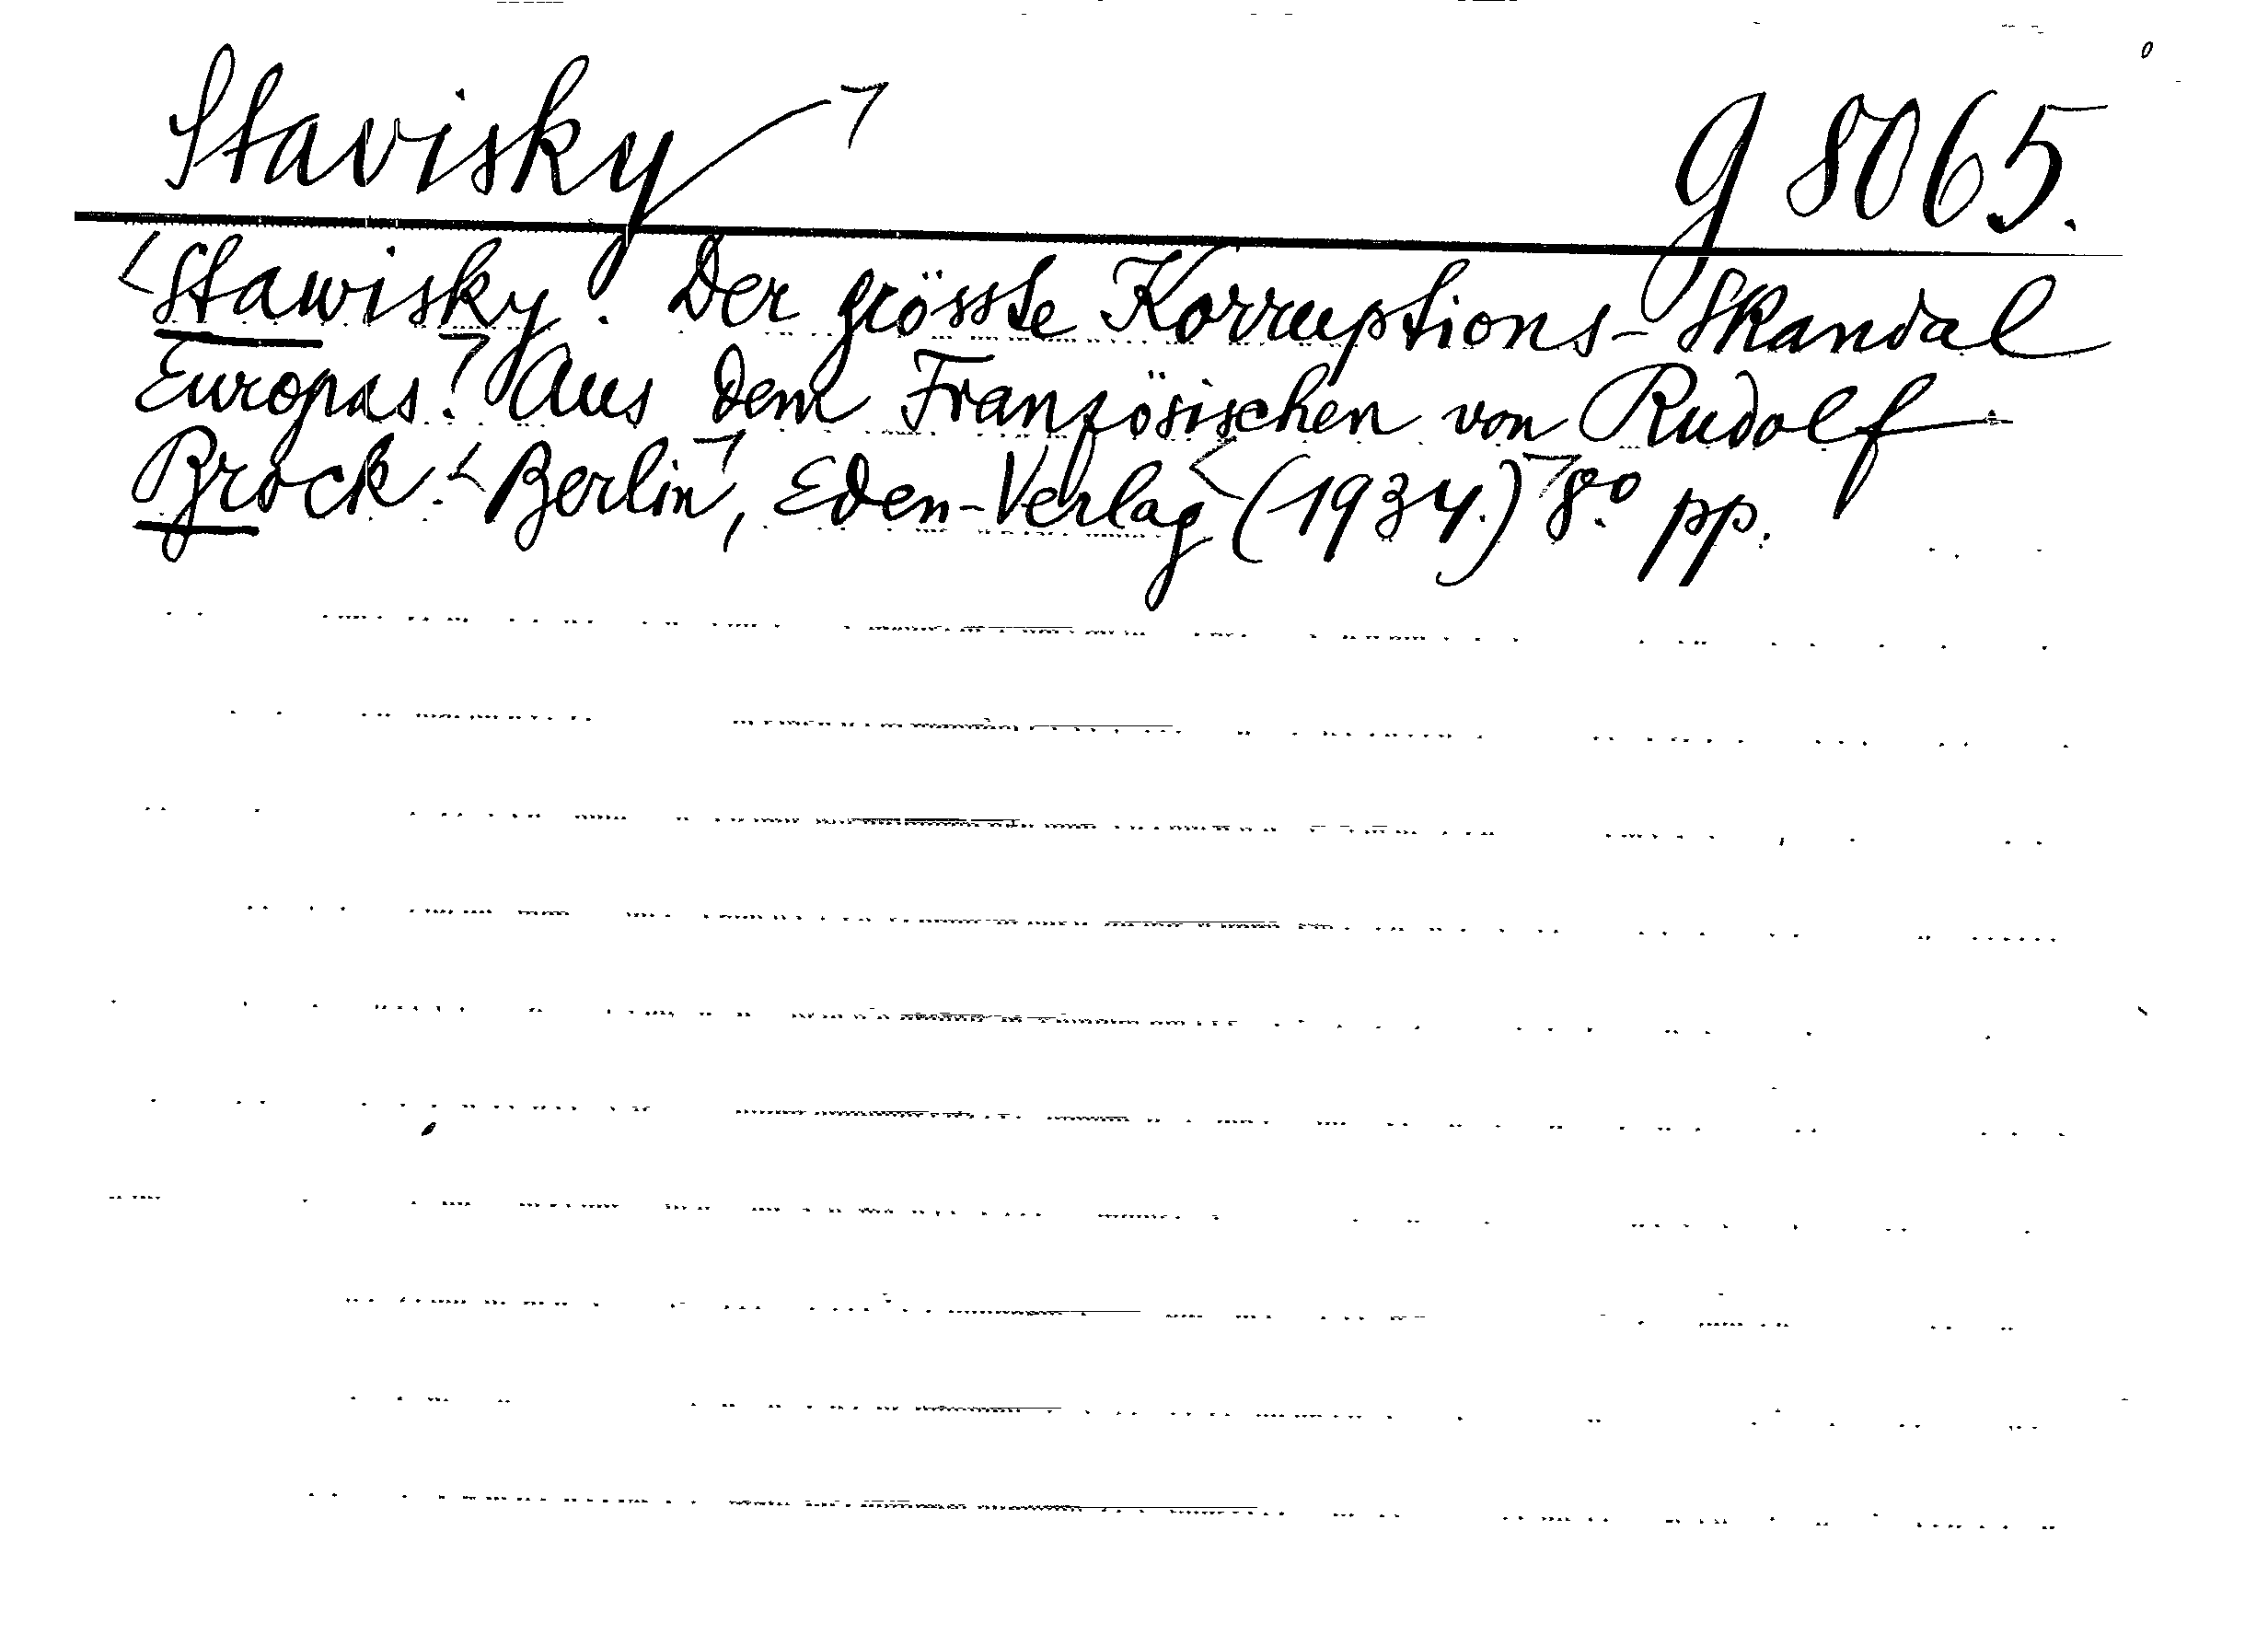 Stavisky g 8065.
Stawisky. Der grösste Korruptions-Skandal
Europas. Aus dem Französischen von Rudolf
Brock. Berlin, Eden-Verlag (1934.) 8.º pp.